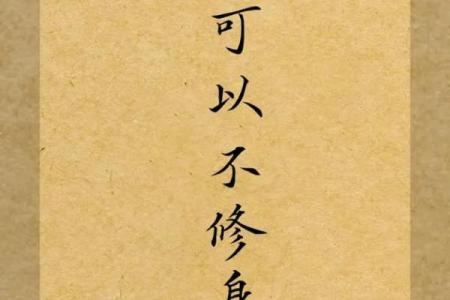 可以不修身